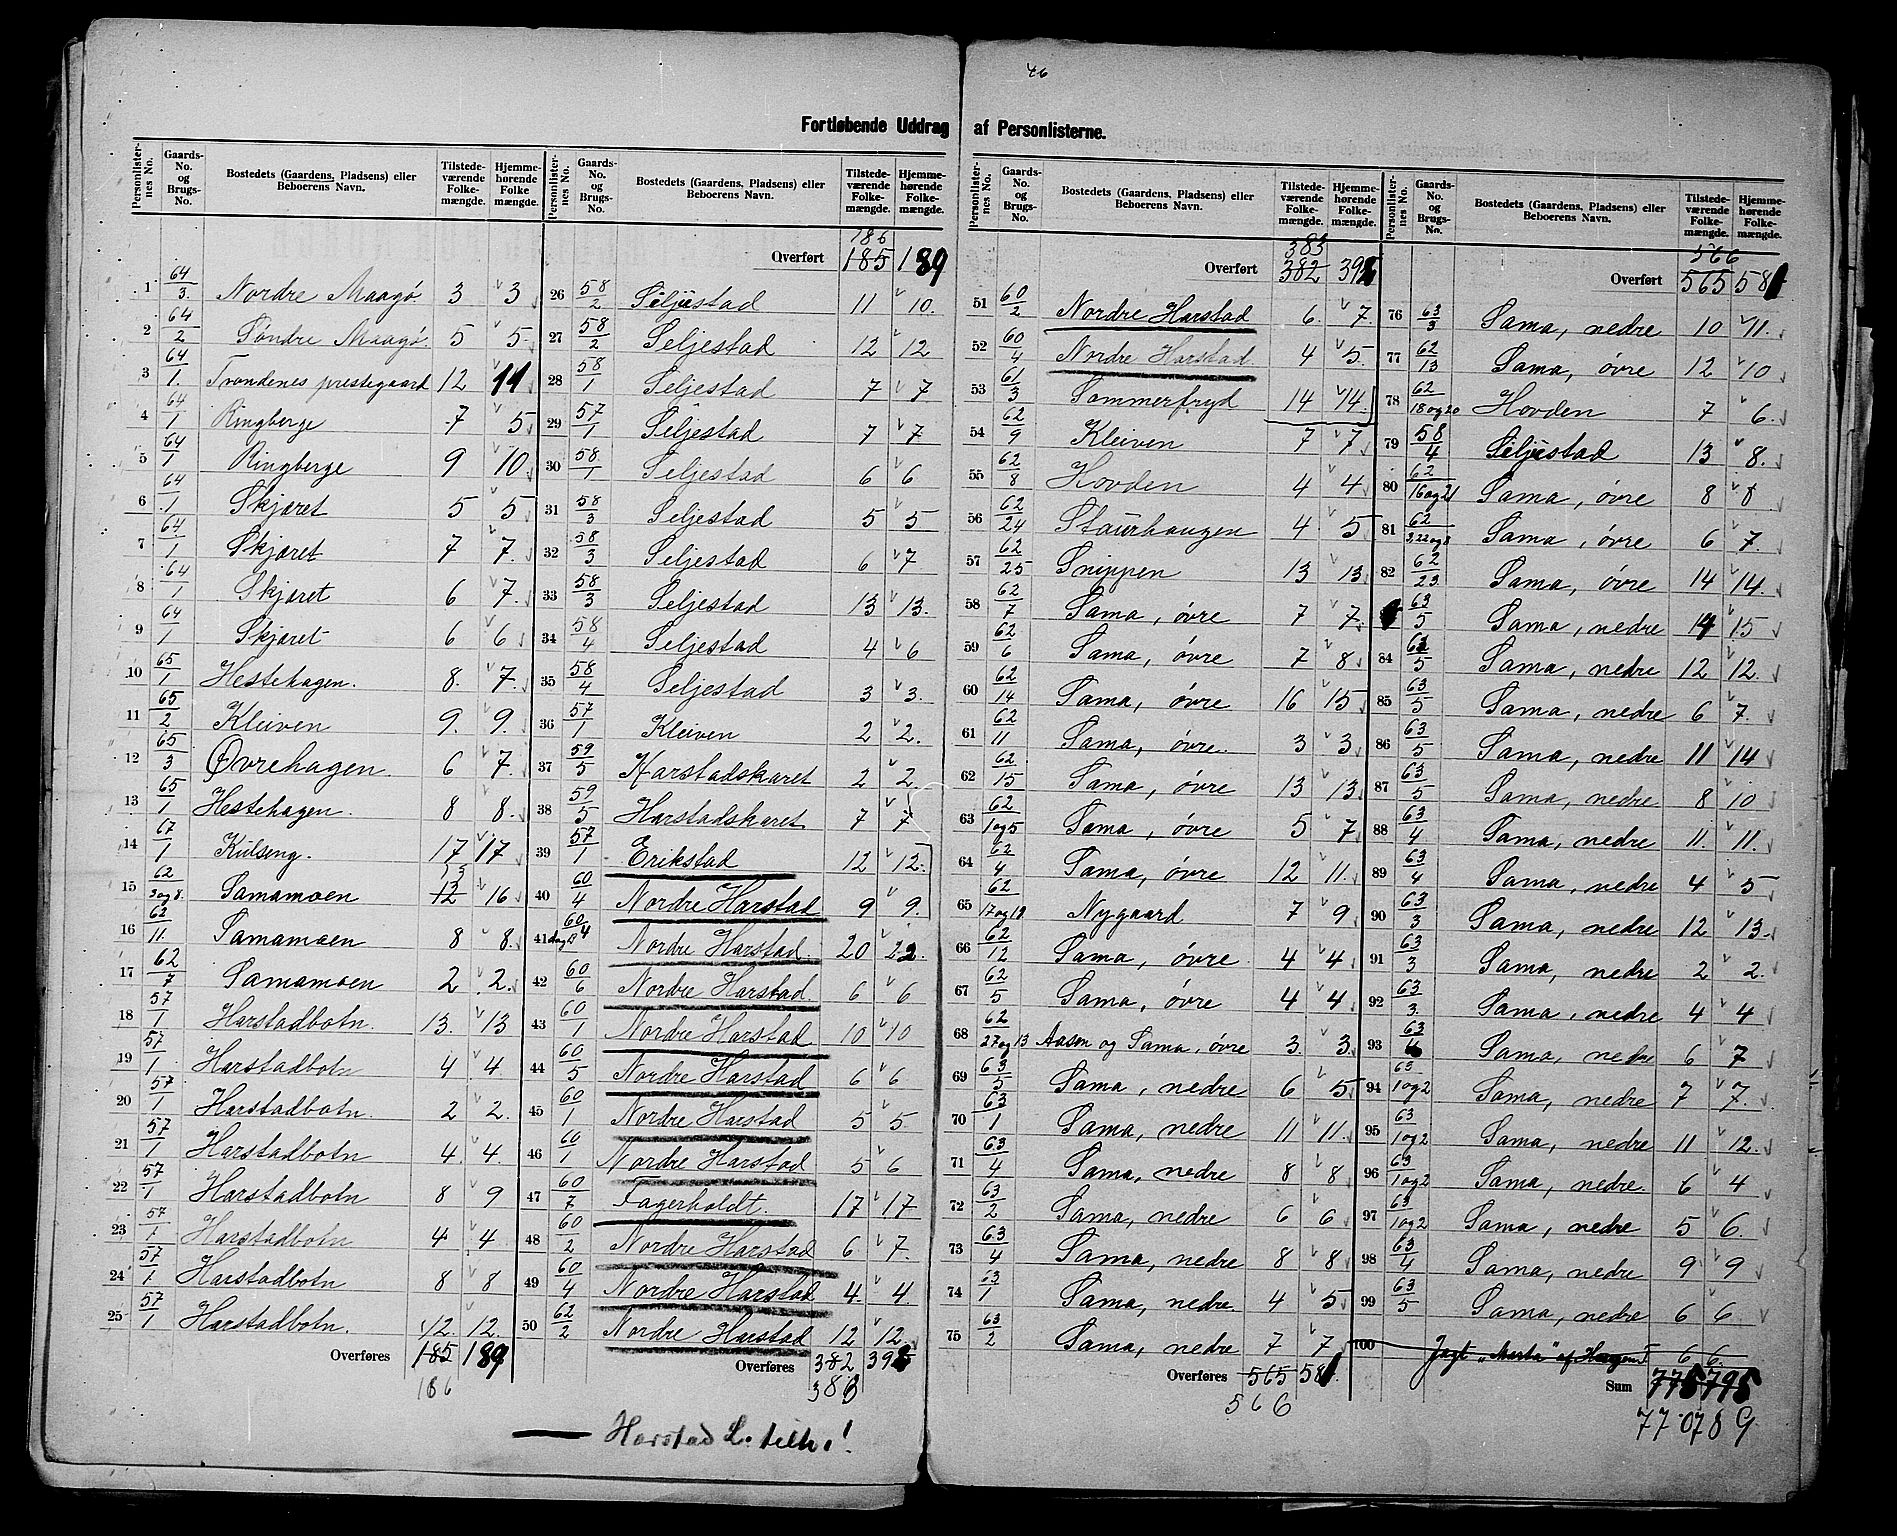 46
Fortløbende Uddrag af Personlisterne.
Personlister-nes No. Gaards-No. og Brugs-No. Bostedets (Gaardens, Pladsens) eller Beboerens Navn. Tilstede-værende Folke-mængde. Hjemme-hørende Folke mængde.
1 64/3. Nordre Maagø 3 3
2 64/2 Søndre Maagø. 5 5
3 64/1. Trondenes prestegaard 12 11
4 64/1 Ringberge 7 5
5 64/1 Ringberge 9 10
6 64/1 Skjæret 5 5
7 64/1 Skjæret 7 7.
8 64/1 Skjæret 6 7.
9 64/1 Skjæret 6 6
10 65/1 Hestehagen. 8. 7.
11 65/2 Kleiven 9. 9.
12 65/3 Øvrehagen. 6 7.
13 65/1 Hestehagen. 8 8.
14 67/1 Kulseng. 17 17
15 62/3og8. Samamoen 13 12 16
16 62/11. Samamoen 8 8.
17 62/7 Samamoen 2 2.
18 57/1 Harstadbotn. 13. 13
19 57/1 Harstadbotn 4 4
20 57/1 Harstadbotn. 2 2.
21 57/1 Harstadbotn 4. 4.
22 57/1 Harstadbotn 8 9
23 57/1 Harstadbotn 4 4
24 57/1 Harstadbotn 8 8
25 57/1 Harstadbotn. 12. 12.
Overføres 185 189
186
Personlister-nes No. Gaards-No. og Brugs-No. Bostedets (Gaardens, Pladsens) eller Beboerens Navn. Tilstede-værende Folke-mængde. Hjemme-hørende Folke-mængde.
186
Overført 185 189
26 58/2 Seljestad 11 10.
27 58/2 Seljestad 12 12
28 58/1 Seljestad 7 7
29 57/1 Seljestad 7 7
30 58/1 Seljestad 6 6
31 58/3 Seljestad 5 5
32 58/3 Seljestad 6 7
33 58/3 Seljestad 13 13.
34 58/4 Seljestad 4 6
35 58/4 Seljestad 3 3.
36 57/1 Kleiven 2 2.
37 59/5 Harstadskaret 2 2.
38 59/5 Harstadskaret 7 7
39 57/1 Erikstad 12 12.
40 60/4 Nordre Harstad 9 9.
41 60/4 Nordre Harstad 20 22.
42 60/6 Nordre Harstad 6 6
43 60/1 Nordre Harstad 10 10
44 60/5 Nordre Harstad 6 6
45 60/1 Nordre Harstad 5 5
46 60/1 Nordre Harstad 5 6
47 60/7 Fagerholdt. 17 17
48 60/2 Nordre Harstad 6 7.
49 60/4 Nordre Harstad 4. 4.
50 62/2 Nordre Harstad 12 12
Overføres 382 392
383
Harstad L. tilh.!
Personlister-nes No. Gaards-No. og Brugs-No. Bostedets (Gaardens, Pladsens) eller Beboerens Navn. Tilstede-værende Folke-mængde. Hjemme-hørende Folke-mængde.
383
Overført 382 392
51 60/2 Nordre Harstad 6. 7.
52 60/4 Nordre Harstad 4 5
53 61/3 Sommerfryd 14 14.
54 62/9 Kleiven 7 7
55 62/8 Hovden 4 4
56 62/24 Staurhaugen 4 5
57 62/25 Snippen 13 13
58 62/7 Sama, øvre 7 7.
59 62/6 Sama, øvre 7 8
60 62/14 Sama, øvre 16 15
61 62/11 Sama, øvre. 3 3
62 62/15 Sama, øvre 13 13
63 62/1og5 Sama, øvre 5 7
64 62/4 Sama, øvre 12 11.
65 62/17og18 Nygaard 7 9
66 62/12 Sama, øvre. 4 4
67 62/5 Sama, øvre 4 4
68 62/27og13 Aasen og Sama, øvre 3. 3
69 63/5 Sama, nedre 6 5
70 63/1 Sama, nedre 11 11.
71 63/4 Sama, nedre 8 8
72 63/2 Sama, nedre 6 6
73 63/4 Sama, nedre 8 8
74 63/1 Sama, nedre. 4 5
75 63/2 Sama, nedre 7 7
Overføres 565 581
566
Personlister-nes No. Gaards-No. og Brugs-No. Bostedets (Gaardens, Pladsens) eller Beboerens Navn. Tilstede-værende Folke-mængde. Hjemme-hørende Folke-mængde.
566
Overført 565 581
76 63/3 Sama, nedre 10 11.
77 62/13 Sama, øvre 12 10
78 62/18og20 Hovden 7 6.
79 58/4 Seljestad 13 8.
80 62/16og21 Sama, øvre 8 8
81 62 Sama, øvre 6 7.
82 62/23 Sama, øvre 14 14.
63/5 Sama, nedre 14 15
84 63/5 Sama, nedre 12 12.
85 63/5 Sama, nedre 6 7.
86 63/5 Sama, nedre 11 14
87 63/5 Sama, nedre 8 10
88 63/4 Sama, nedre 11. 11.
89 63/4 Sama, nedre 4 5
90 63/3 Sama, nedre 12 13.
91 63/3 Sama, nedre 2 2.
92 63/3. Sama, nedre 4 4
93 63 Sama, nedre 6 7
94 63/1og2 Sama, nedre 7 7.
95 63/1og2 Sama, nedre 11 12.
96 63/1og2 Sama, nedre. 6 4
97 63/1og2 Sama, nedre 5 6.
98 63/4 Sama, nedre 9 9
99 63/5 Sama, nedre 6 6.
100 Jagt „Marta" af 6 6.
Sum 775 795
770 789